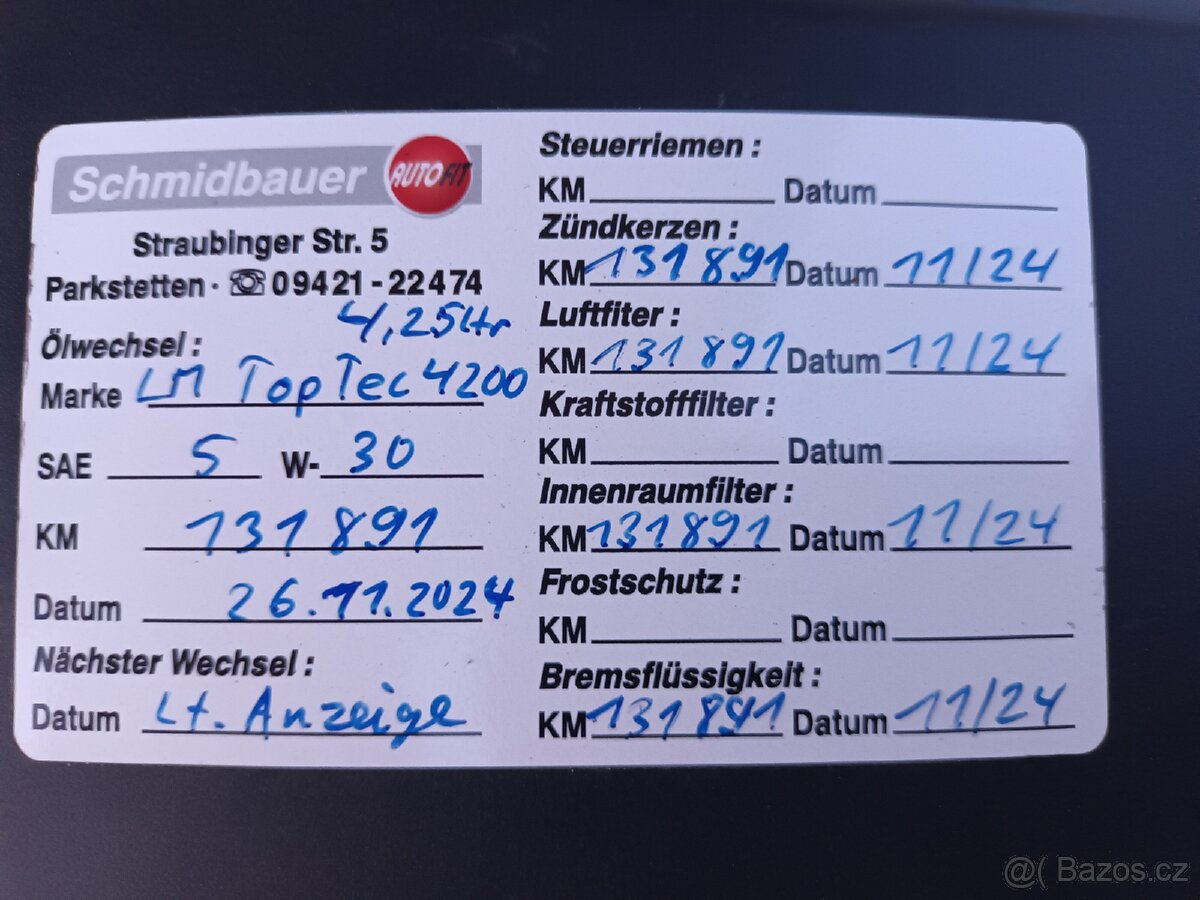 Schmidbauer AUTOFIT
Straubinger Str. 5
Parkstetten · ☏ 09421 - 22474
4,25 Ltr
Ölwechsel :
Marke LM TopTec 4200
SAE 5 W- 30
KM 131891
Datum 26.11.2024
Nächster Wechsel :
Datum Lt. Anzeige
Steuerriemen :
KM Datum
Zündkerzen :
KM 131891 Datum 11/24
Luftfiter :
KM 131891 Datum 11/24
Kraftstofffilter :
KM Datum
Innenraumfilter :
KM 131891 Datum 11/24
Frostschutz :
KM Datum
Bremsflüssigkeit :
KM 131891 Datum 11/24
@( Bazos.cz